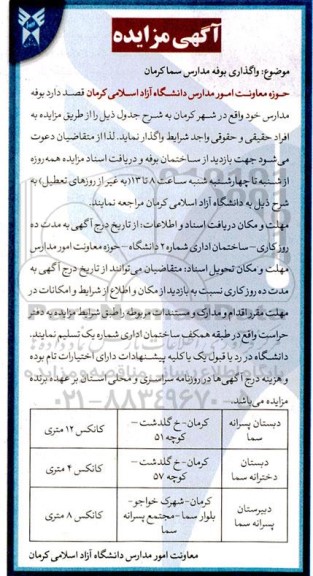 آگهی مزایده
موضوع: واگذاری بوفه مدارس سما کرمان
حوزه معاونت امور مدارس دانشگاه آزاد اسلامی کرمان قصد دارد بوفه
مدارس خود واقع در شهر کرمان به شرح جدول ذیل را از طریق مزایده به
افراد حقیقی و حقوقی واجد شرایط واگذار نماید. لذا از متقاضیان دعوت
می‌شود جهت بازدید از ساختمان بوفه و دریافت اسناد مزایده همه روزه
از شنبه تا چهارشنبه شنبه ساعت ۸ تا ۱۳ (به غیر از روزهای تعطیل) به
شرح ذیل به دانشگاه آزاد اسلامی کرمان مراجعه نمایند.
مهلت و مکان دریافت اسناد و اطلاعات: از تاریخ درج آگهی به مدت ده
روز کاری – ساختمان اداری شماره ۲ دانشگاه – حوزه معاونت امور مدارس
مهلت و مکان تحویل اسناد: متقاضیان می‌توانند از تاریخ درج آگهی به
مدت ده روز کاری نسبت به بازدید از مکان و اطلاع از شرایط و امکانات در
مهلت مقرر اقدام و مدارک و مستندات مربوطه را طبق شرایط مزایده به دفتر
حراست واقع در طبقه همکف ساختمان اداری شماره یک تسلیم نمایند.
دانشگاه در رد یا قبول یک یا کلیه پیشنهادات دارای اختیارات تام بوده
و هزینه درج آگهی‌ها در روزنامه سراسری و محلی استان بر عهده برنده
مزایده می‌باشد.
دبستان پسرانه سما	کرمان-خ گلدشت – کوچه ۵۱	کانکس ۱۲ متری
دبستان دخترانه سما	کرمان-خ گلدشت – کوچه ۵۷	کانکس ۴ متری
دبیرستان پسرانه سما	کرمان-شهرک خواجو-بلوار سما-مجتمع پسرانه سما	کانکس ۸ متری
معاونت امور مدارس دانشگاه آزاد اسلامی کرمان
پایگاه اطلاع رسانی مناقصه و مزایده
۰۲۱-۸۸۳۴۹۶۷۰